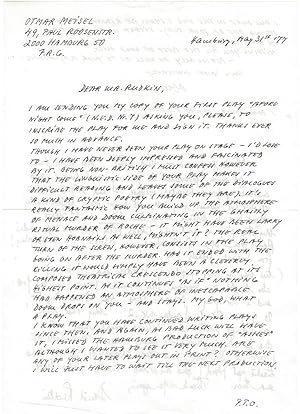 OTMAR MEISEL
49, PAUL ROOSENSTR.
2000 HAMBURG 50
F.R.G.
Hamburg, May 31st '77
DEAR MR. RUDKIN,
I AM SENDING YOU MY COPY OF YOUR FIRST PLAY "AFORE
NIGHT COME" (N.E.D. N.7) ASKING YOU, PLEASE, TO
INSCRIBE THE PLAY FOR ME AND SIGN IT. THANKS EVER
SO MUCH IN ADVANCE.
THOUGH I HAVE NEVER SEEN YOUR PLAY ON STAGE - I'D LOVE
TO - I HAVE BEEN DEEPLY IMPRESSED AND FASCINATED
BY IT. BEING NON-BRITISH I MUST CONFESS HOWEVER
THAT THE LINGUISTIC SIDE OF YOUR PLAY MAKES IT
DIFFICULT READING AND LEAVES SOME OF THE DIALOGUES
A KIND OF CRYPTIC POETRY (MAYBE THEY ARE). IT'S
REALLY FANTASTIC HOW YOU BUILD UP THE ATMOSPHERE
OF MENACE AND DOOM CULMINATING IN THE GHASTLY
RITUAL MURDER OF ROCHE - IT MIGHT HAVE BEEN LARRY
OR EVEN AS WELL, MIGHTN'T IT? THE REAL
OF THE SCREW, HOWEVER, CONSISTS IN THE PLAY
GOING ON AFTER THE MURDER. HAD IT ENDED WITH THE
KILLING IT WOULD SIMPLY HAVE BEEN A CLEVERLY
COMPOSED THEATRICAL CRESCENDO STOPPING AT ITS
HIGHEST POINT. AS IT CONTINUES "AS IF" NOTHING
HAD HAPPENED AN ATMOSPHERE OF INESCAPABLE
DOOM DROPS ON YOU - AND STAYS. MY GOD, WHAT
A PLAY.
I KNOW THAT YOU HAVE CONTINUED WRITING PLAYS
SINCE THEN, AND AGAIN, AS BAD LUCK WILL HAVE
IT, I MISSED THE HAMBURG PRODUCTION OF "ASHES"
ALTHOUGH I WANTED TO SEE IT VERY MUCH. ARE
ANY OF YOUR LATER PLAYS OUT IN PRINT? OTHERWISE
I WILL JUST HAVE TO WAIT TILL THE NEXT PRODUCTION,
P.T.O.